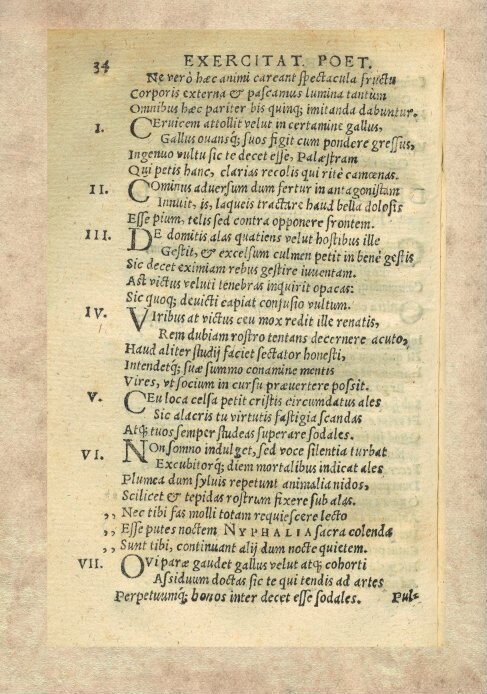 34 EXERCITAT. POET.
Ne verò hæc animi careant spectacula fructu
Corporis externa & pascamus lumina tantùm
Omnibus hæc pariter bis quinq; imitanda dabuntur.
I. CErvicem attollit velut in certamine gallus,
Gallus ovansq; suos figit cum pondere gressus,
Ingenuo vultu sic te decet esse, Palæstram
Qui petis hanc, clarias recolis qui ritè camœnas.
II. COminus adversum dum fertur in antagonistam
Innuit, is, laqueis tractare haud bella dolosis
Esse pium, telis sed contra opponere frontem.
III. DE domitis alas quatiens velut hostibus ille
Gestit, & excelsum culmen petit in benè gestis
Sic decet eximiam rebus gestire iuventam.
Ast victus veluti tenebras inquirit opacas:
Sic quoq; devicti capiat confusio vultum.
IV. VIribus at victus ceu mox redit ille renatis,
Rem dubiam rostro tentans decernere acuto,
Haud aliter studij faciet sectator honesti,
Intendetq; suæ summo conamine mentis
Vires, vt socium in cursu prævertere possit.
V. CEu loca celsa petit cristis circumdatus ales
Sic alacris tu virtutis fastigia scandas
Atq; tuos semper studeas superare sodales.
VI. NOn somno indulget, sed voce silentia turbat
Excubitorq; diem mortalibus indicat ales
Plumea dum sylvis repetunt animalia nidos,
Scilicet & tepidas rostrum fixere sub alas.
,, Nec tibi fas molli totam requiescere lecto
,, Esse putes noctem NYPHALIA sacra colenda
,, Sunt tibi, continuant alij dum nocte quietem.
VII. OVi paræ gaudet gallus velut atq; cohorti
Assiduum doctas sic te qui tendis ad artes
Perpetuumq; bonos inter decet esse sodales. Pul-